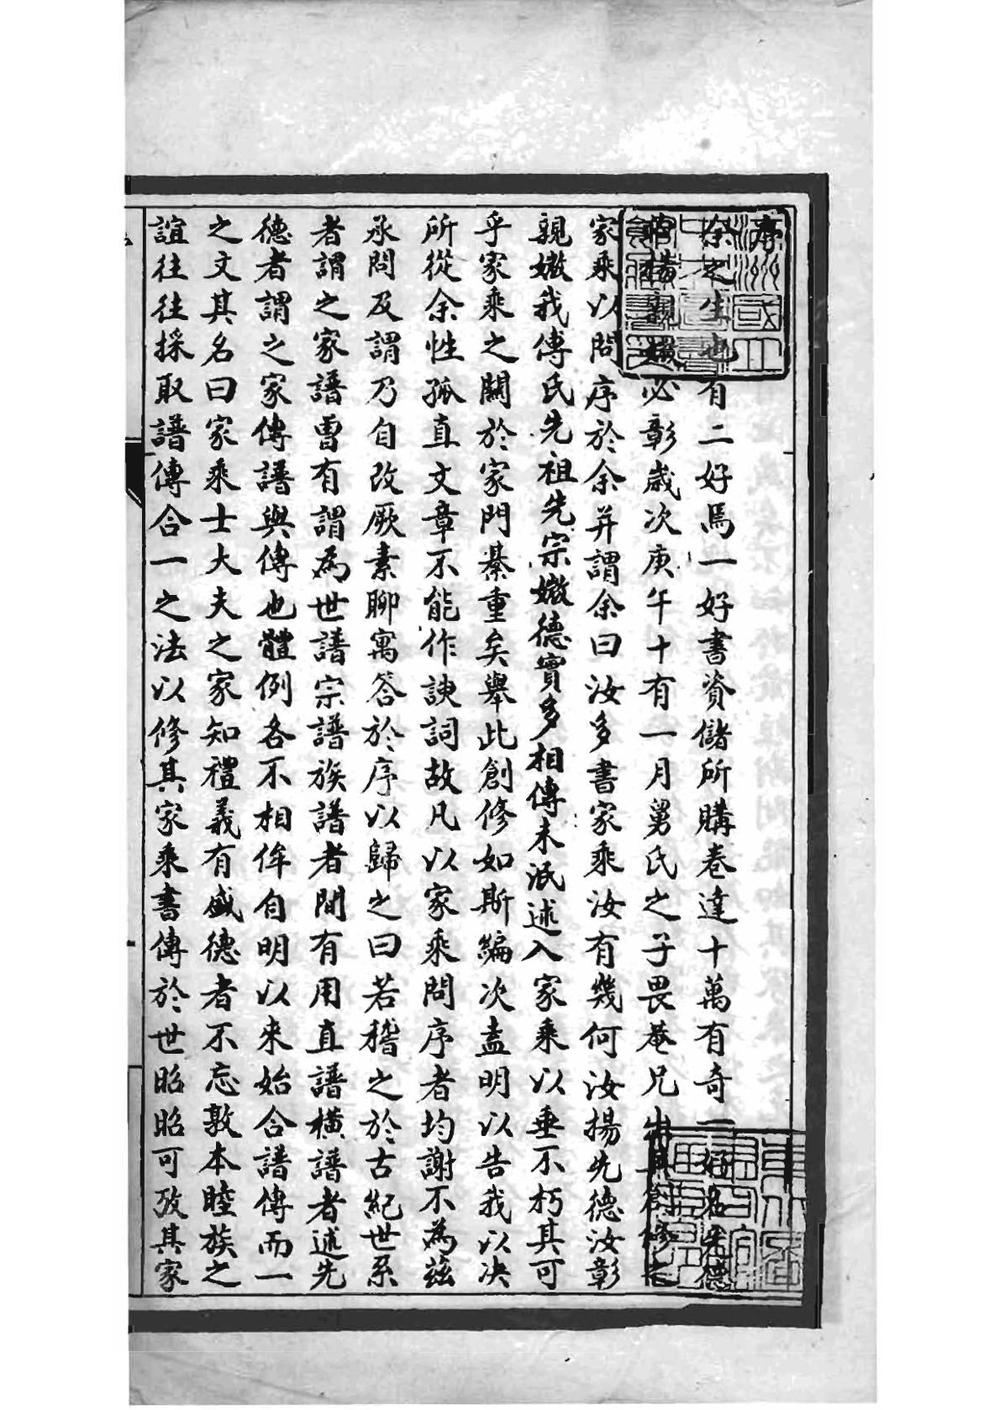 序
余之生也有二好焉一好書資儲所購卷達十萬有奇一好名先德
揚親媺必彰歲次庚午十有一月舅氏之子畏菴兄出其創修之
家乘以問序於余并謂余曰汝多書家乘汝有幾何汝揚先德汝彰
親媺我傳氏先祖先宗媺德實多相傳未泯述入家乘以垂不朽其可
乎家乘之關於家門綦重矣舉此創修如斯編次盍明以告我以决
所從余性孤直文章不能作諛詞故凡以家乘問序者均謝不為茲
承問及謂乃自改厥素聊寓答於序以歸之曰若稽之於古紀世系
者謂之家譜曹有謂為世譜宗譜族譜者間有用直譜橫譜者述先
德者謂之家傳譜與傳也體例各不相侔自明以來始合譜傳而一
之文其名曰家乘士大夫之家知禮義有盛德者不忘敦本睦族之
誼往往採取譜傳合一之法以修其家乘書傳於世昭昭可攷其家